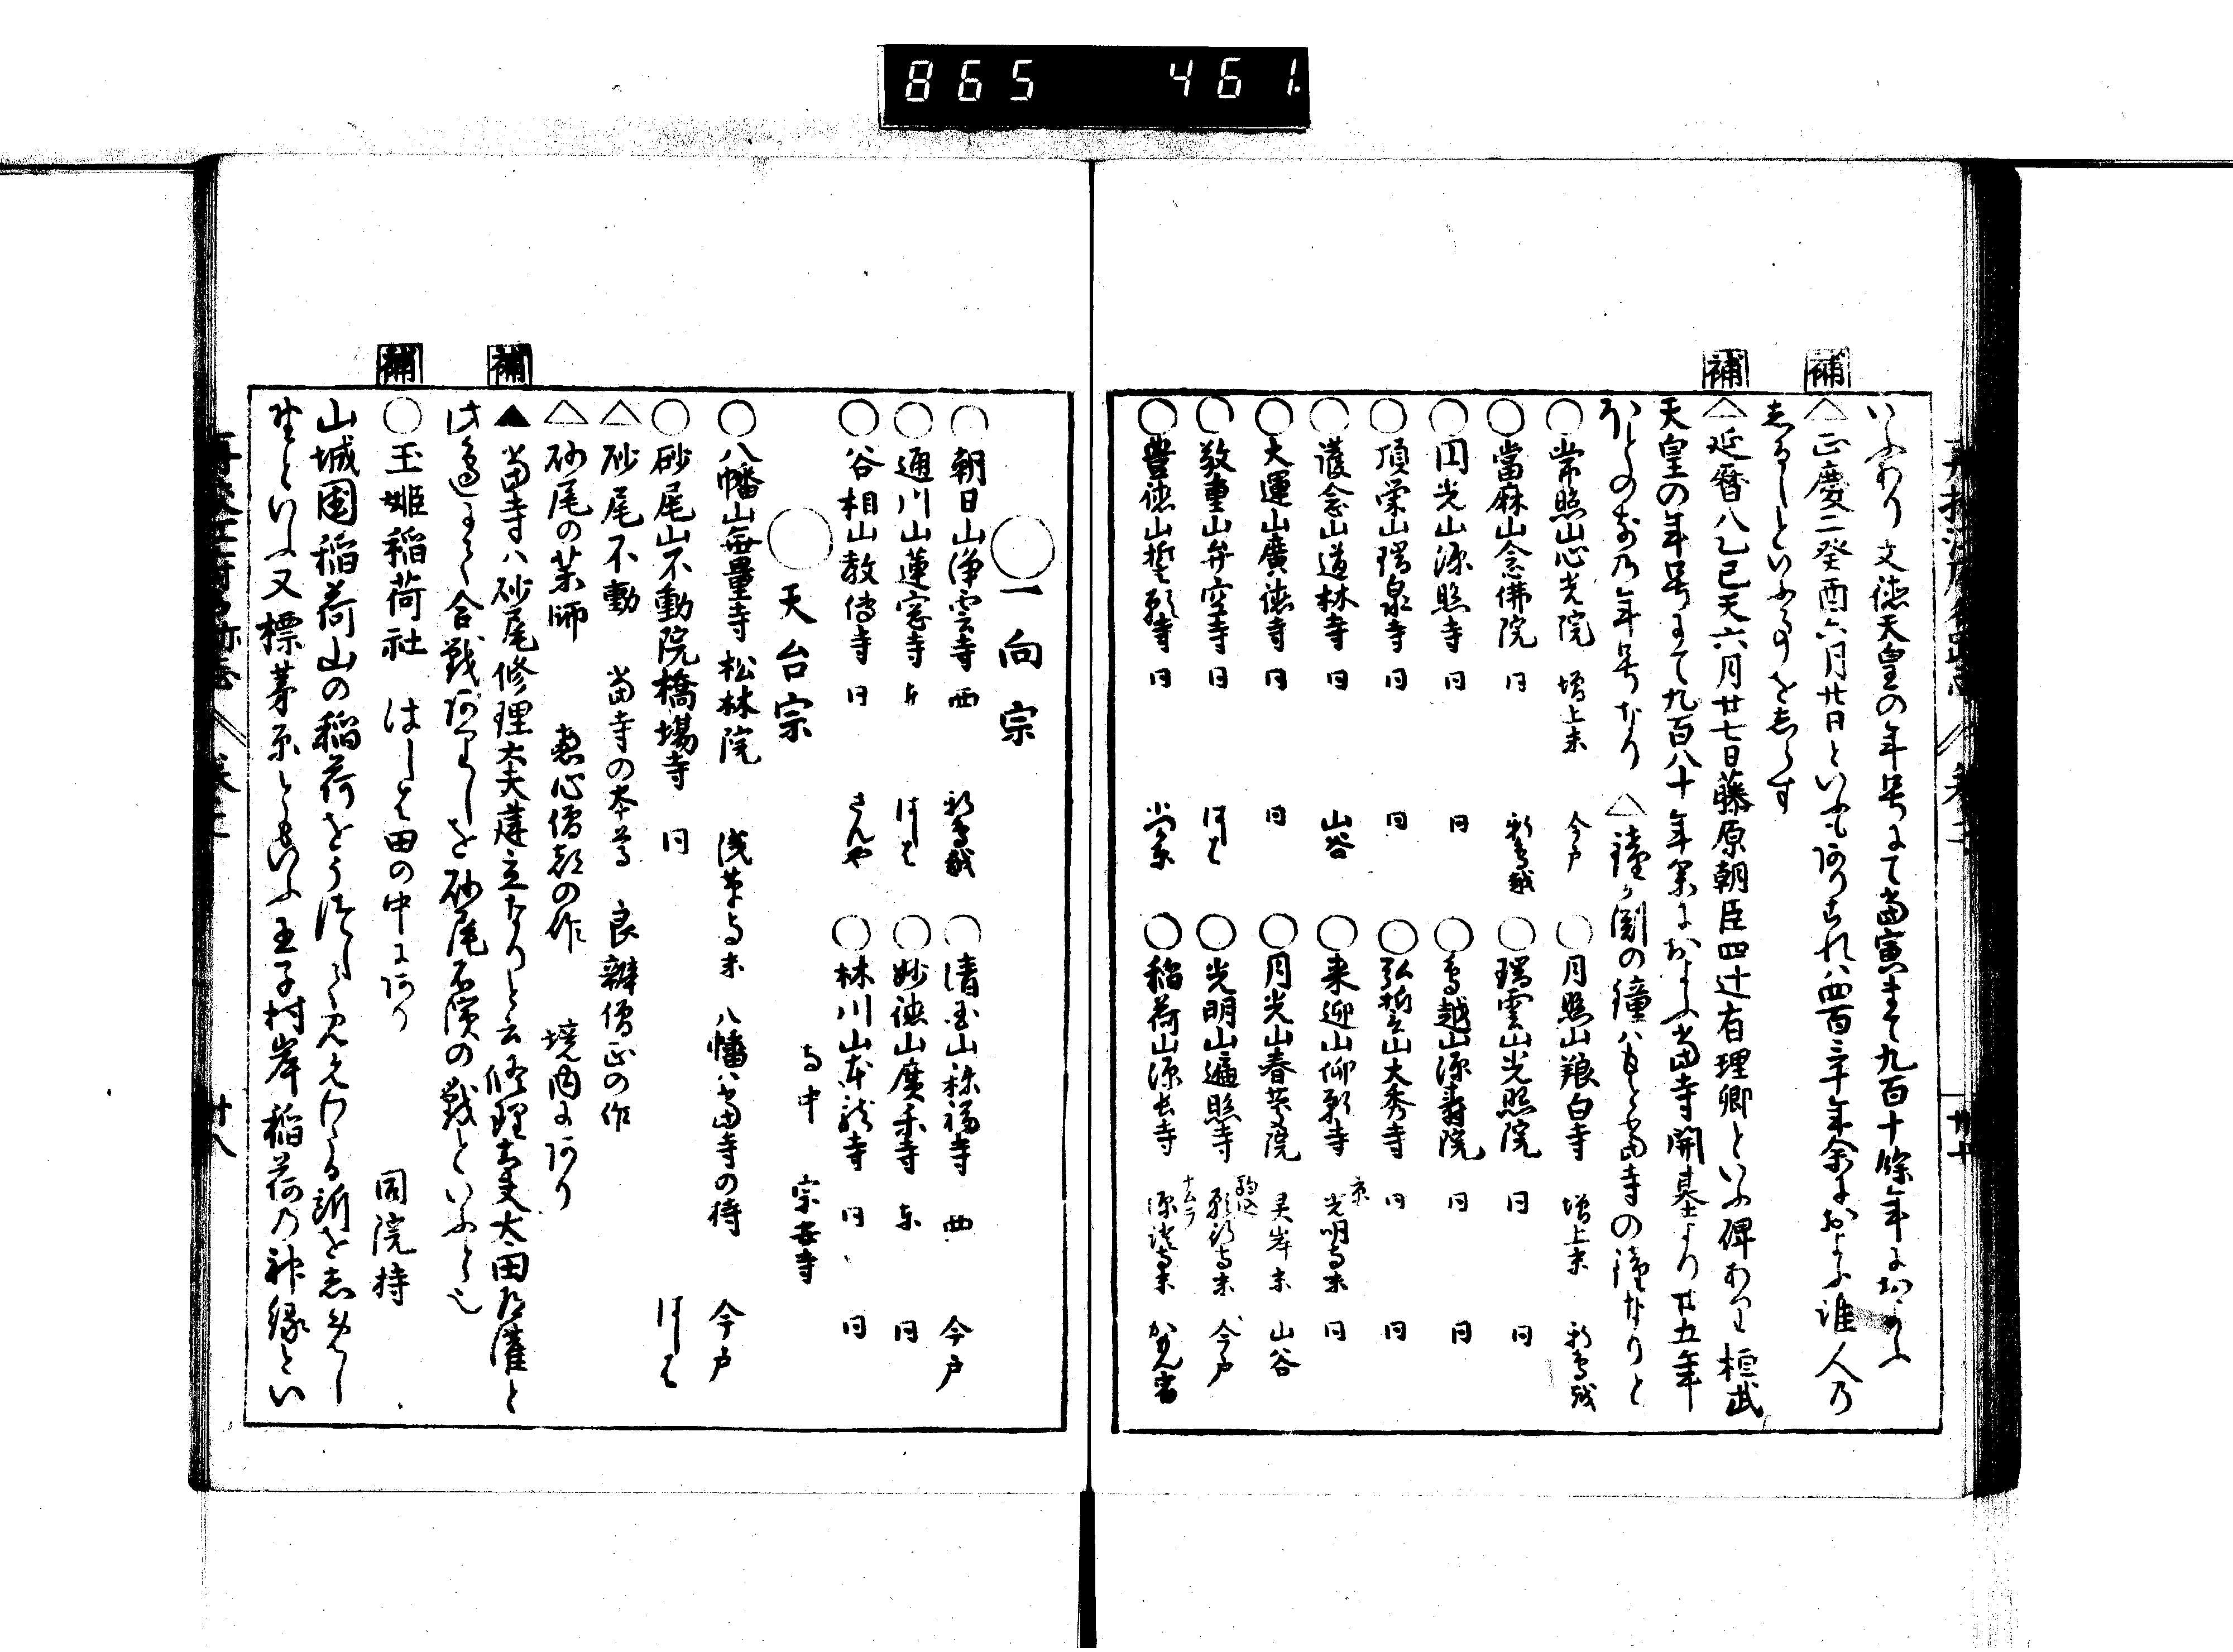 865 461
いふあり文徳天皇の年号にて當寅まて九百十餘年におよふ
補
△正慶二癸酉六月廿日といふもありこれハ四百三十年余におよふ誰人乃
しるしといふ事をしらす
補
△延暦八乙巳天六月廿七日藤原朝臣四辻右理卿といふ碑あり桓武
天皇の年号にて九百八十年余におよふ當寺開基より廿五年
ほとのちの年号なり △鐘か淵の鐘ハもと當寺の鐘なりと
○常照山心光院 増上末 今戸 ○月照山 白寺 増上末 新鳥越
○當麻山念佛院 同 新鳥越 ○瑞雲山光照院 同 同
○円光山源照寺 同 同 ○鳥越山源壽院 同 同
○頂栄山瑞泉寺 同 同 ○弘誓山大秀寺 同 同
○護念山道林寺 同 山谷 ○来迎山仰願寺 京光明寺末 同
○大運山廣徳寺 同 同 ○月光山春慶院 灵岸末 山谷
○敬重山弁空寺 同 はしは ○光明山遍照寺 駒込願行寺末 今戸
○豊徳山誓願寺 同 小塚 ○稲荷山源長寺 末
○一向宗
○朝日山浄雲寺 西 新鳥越 ○清 山 福寺 西 今戸
○通川山蓮窓寺 東 はしは ○妙徳山廣 寺 東 同
○谷相山教傳寺 同 さんや ○林川山本龍寺 同 同
○天台宗 寺中 宗 寺
○八幡山無量寺松林院 浅草寺末 八幡ハ當寺の持 今戸
○砂尾山不動院橋場寺 同 はしは
△砂尾不動 當寺の本尊 良辨僧正の作
△砂尾の薬師 恵心僧都の作 境内にあり
補
▲當寺ハ砂尾修理大夫建立なりと云修理大夫太田道灌と
此邊にて合戦ありしを砂尾石濱の戦といふとそ
補
○玉姫稲荷社 はしは田の中にあり 同院持
山城国稲荷山の稲荷をうつし
といふ又標茅原ともいふ王子村岸稲荷乃神縁とい